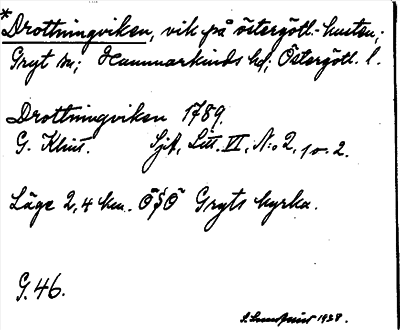 *Drottningviken, vik på östergötl.-kusten;
Gryt sn; Hammarkinds hd; Östergötl. l.
Drottningviken 1789.
G. Klint. Sjöf. Litt. VI, N:o 2, 1 o. 2.
Läge 2,4 km. ÖSÖ Gryts kyrka.
G. 46.
1938.